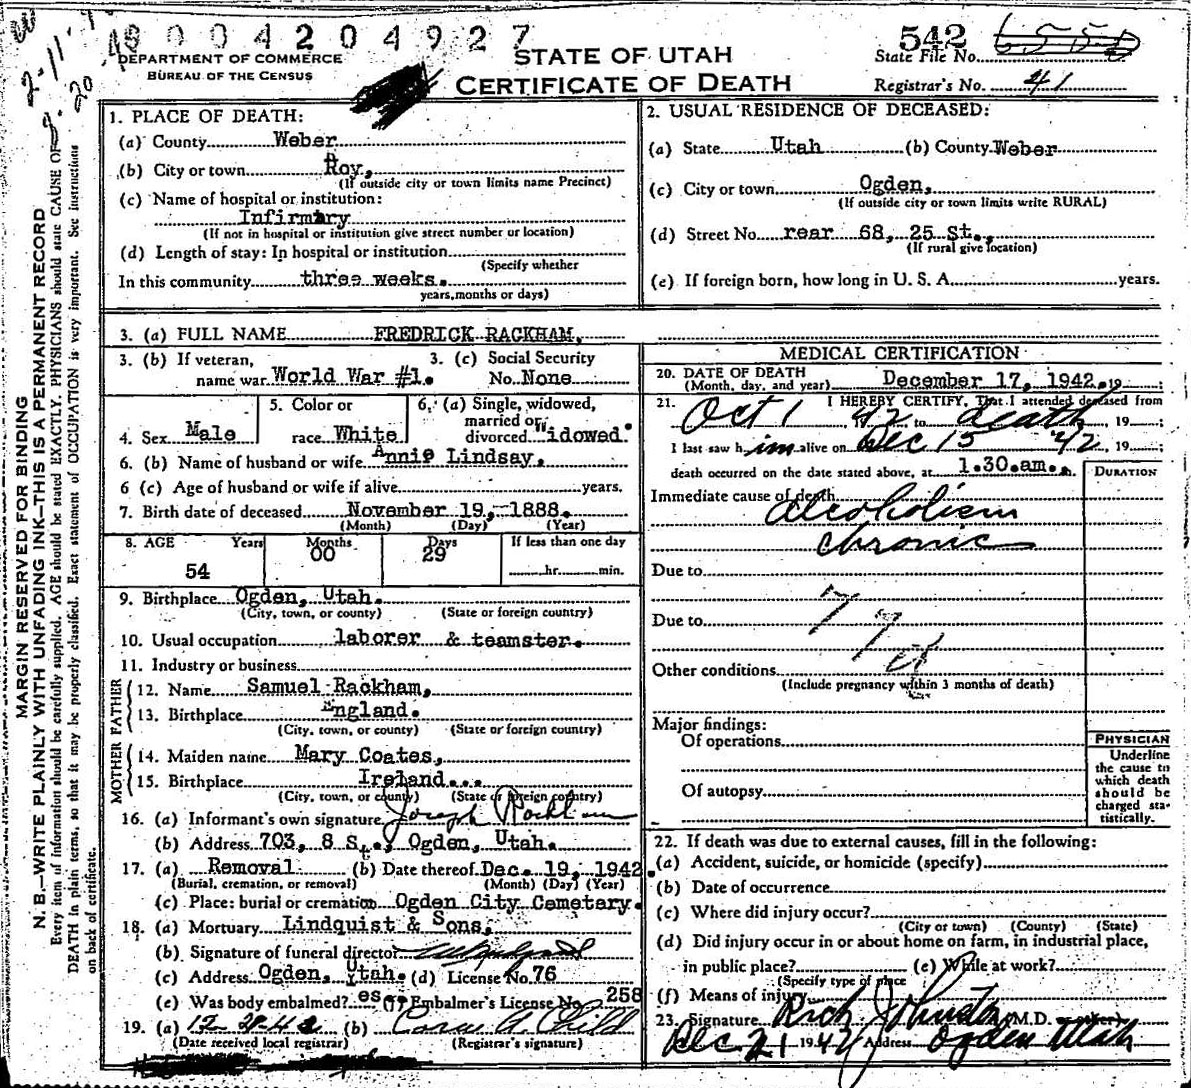 9004204927
DEPARTMENT OF COMMERCE
BUREAU OF THE CENSUS
STATE OF UTAH
CERTIFICATE OF DEATH
542
State File No.
Registrar's No. 41
MARGIN RESERVED FOR BINDING
N. B.—WRITE PLAINLY WITH UNFADING INK—THIS IS A PERMANENT RECORD
Every item of information should be carefully supplied. AGE should be stated EXACTLY. PHYSICIANS should state CAUSE OF
DEATH in plain terms, so that it may be properly classified. Exact statement of OCCUPATION is very important. See instructions
on back of certificate.
1. PLACE OF DEATH:
(a) County Weber
(b) City or town Roy,
(If outside city or town limits name Precinct)
(c) Name of hospital or institution:
Infirmary
(If not in hospital or institution give street number or location)
(d) Length of stay: In hospital or institution
(Specify whether
In this community three weeks.
years, months or days)
2. USUAL RESIDENCE OF DECEASED:
(a) State Utah (b) County Weber
(c) City or town Ogden,
(If outside city or town limits write RURAL)
(d) Street No. rear 68, 25 St.,
(If rural give location)
(e) If foreign born, how long in U. S. A. years.
3. (a) FULL NAME FREDRICK RACKHAM,
3. (b) If veteran, name war World War #1.
3. (c) Social Security No. None
4. Sex Male
5. Color or race White
6. (a) Single, widowed, married or divorced Widowed.
6. (b) Name of husband or wife Annie Lindsay.
6 (c) Age of husband or wife if alive years.
7. Birth date of deceased November 19, 1888.
(Month) (Day) (Year)
8. AGE Years Months Days If less than one day
54 00 29 hr. min.
9. Birthplace Ogden, Utah.
(City, town, or county) (State or foreign country)
10. Usual occupation laborer & teamster.
11. Industry or business
FATHER
12. Name Samuel Rackham,
13. Birthplace England.
(City, town, or county) (State or foreign country)
MOTHER
14. Maiden name Mary Coates,
15. Birthplace Ireland...
(City, town, or county) (State or foreign country)
16. (a) Informant's own signature Joseph Rackham
(b) Address 703, 8 St., Ogden, Utah.
17. (a) Removal (b) Date thereof Dec. 19, 1942.
(Burial, cremation, or removal) (Month) (Day) (Year)
(c) Place: burial or cremation Ogden City Cemetary.
18. (a) Mortuary Lindquist & Sons,
(b) Signature of funeral director
(c) Address Ogden, Utah. (d) License No. 76
(e) Was body embalmed? es (f) Embalmer's License No. 258
19. (a) (b) A. Child
(Date received local registrar) (Registrar's signature)
MEDICAL CERTIFICATION
20. DATE OF DEATH
(Month, day, and year) December 17, 1942. 19
21. I HEREBY CERTIFY, That I attended deceased from
Oct 1 42 to death, 19
I last saw him alive on Dec 15 42, 19
death occurred on the date stated above, at 1.30.am.
DURATION
Immediate cause of death
Alcoholism
Chronic
Due to
Due to
77
Other conditions
(Include pregnancy within 3 months of death)
Major findings:
Of operations
Of autopsy
PHYSICIAN
Underline
the cause to
which death
should be
charged sta-
tistically.
22. If death was due to external causes, fill in the following:
(a) Accident, suicide, or homicide (specify)
(b) Date of occurrence
(c) Where did injury occur?
(City or town) (County) (State)
(d) Did injury occur in or about home on farm, in industrial place,
in public place? (e) While at work?
(Specify type of place
(f) Means of injury
23. Signature Rich Johnston (M.D.
Dec 21 1942 Address Ogden Utah